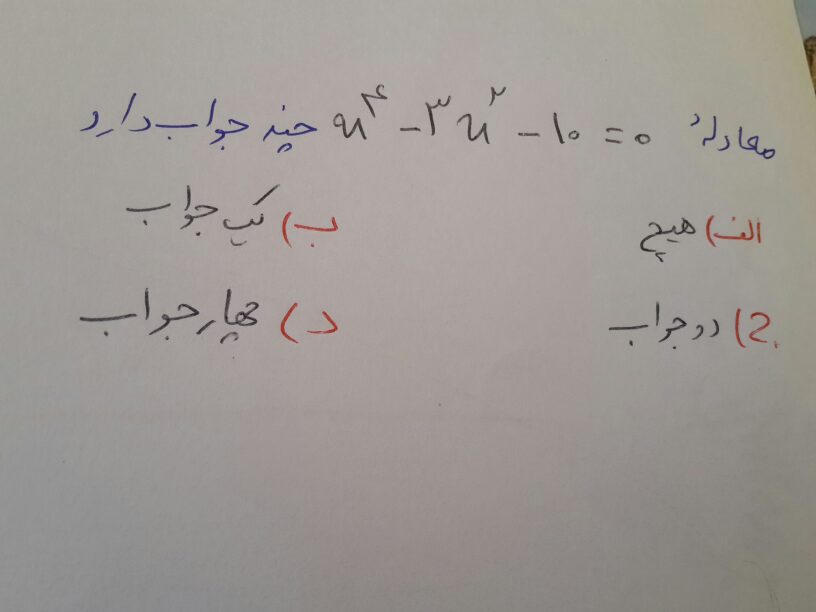 معادلهٔ x⁴ - ۳x² - ۱۰ = ۰ چند جواب دارد
الف) هیچ ب) یک جواب
ج) دو جواب د) چهار جواب